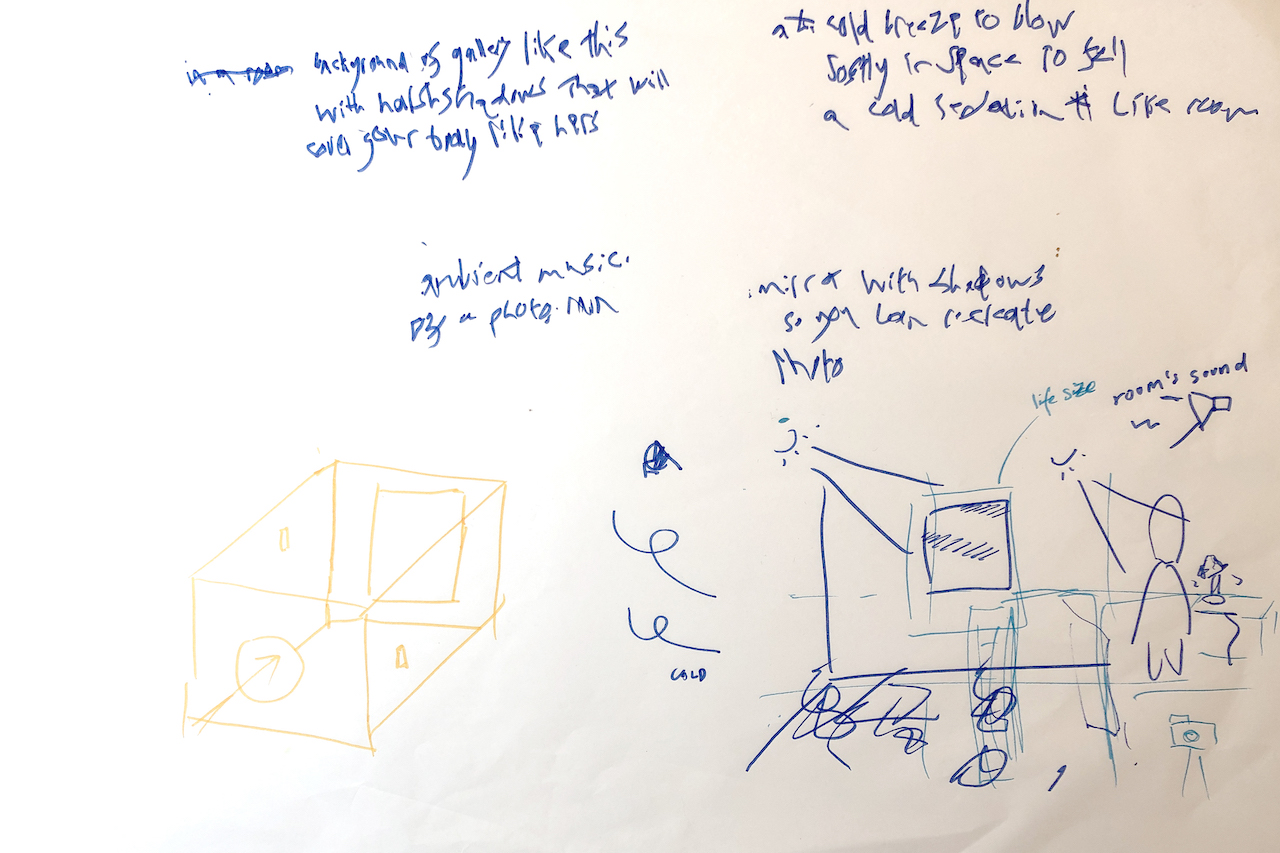 background of gallery like this
with harsh shadows that will
cover your body like hers
cold breeze to blow
softly in space to fell
a cold sedation Like room
ambient music.
by a photo.
mirror with shadows
so you can recreate
Photo
life size
room's sound
COLD